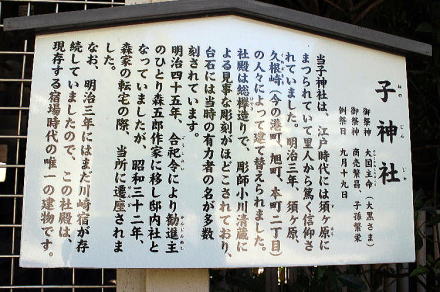 子神社
ねの じん じゃ
御祭神 大国主命(大黒さま)
御祭神 商売繁昌、子孫繁栄
例祭日 九月十九日
当子神社は、江戸時代には須ヶ原に
まつられていて里人から篤く信仰さ
れていました。明治三年、須ヶ原、
久根崎(今の港町、旭町、本町二丁目)
の人々によって建て替えられました。
社殿は総欅造りで、彫師小川清蔵に
よる見事な彫刻がほどこされており、
台石には当時の有力者の名が多数
刻されています。
明治四十五年、合祀令により勧進主
のひとり森五郎作家に移し邸内社と
なっていましたが、昭和三十二年、
森家の転宅の際、当所に遷座されま
した。
なお、明治三年にはまだ川崎宿が存
続していましたので、この社殿は、
現存する宿場時代の唯一の建物です。